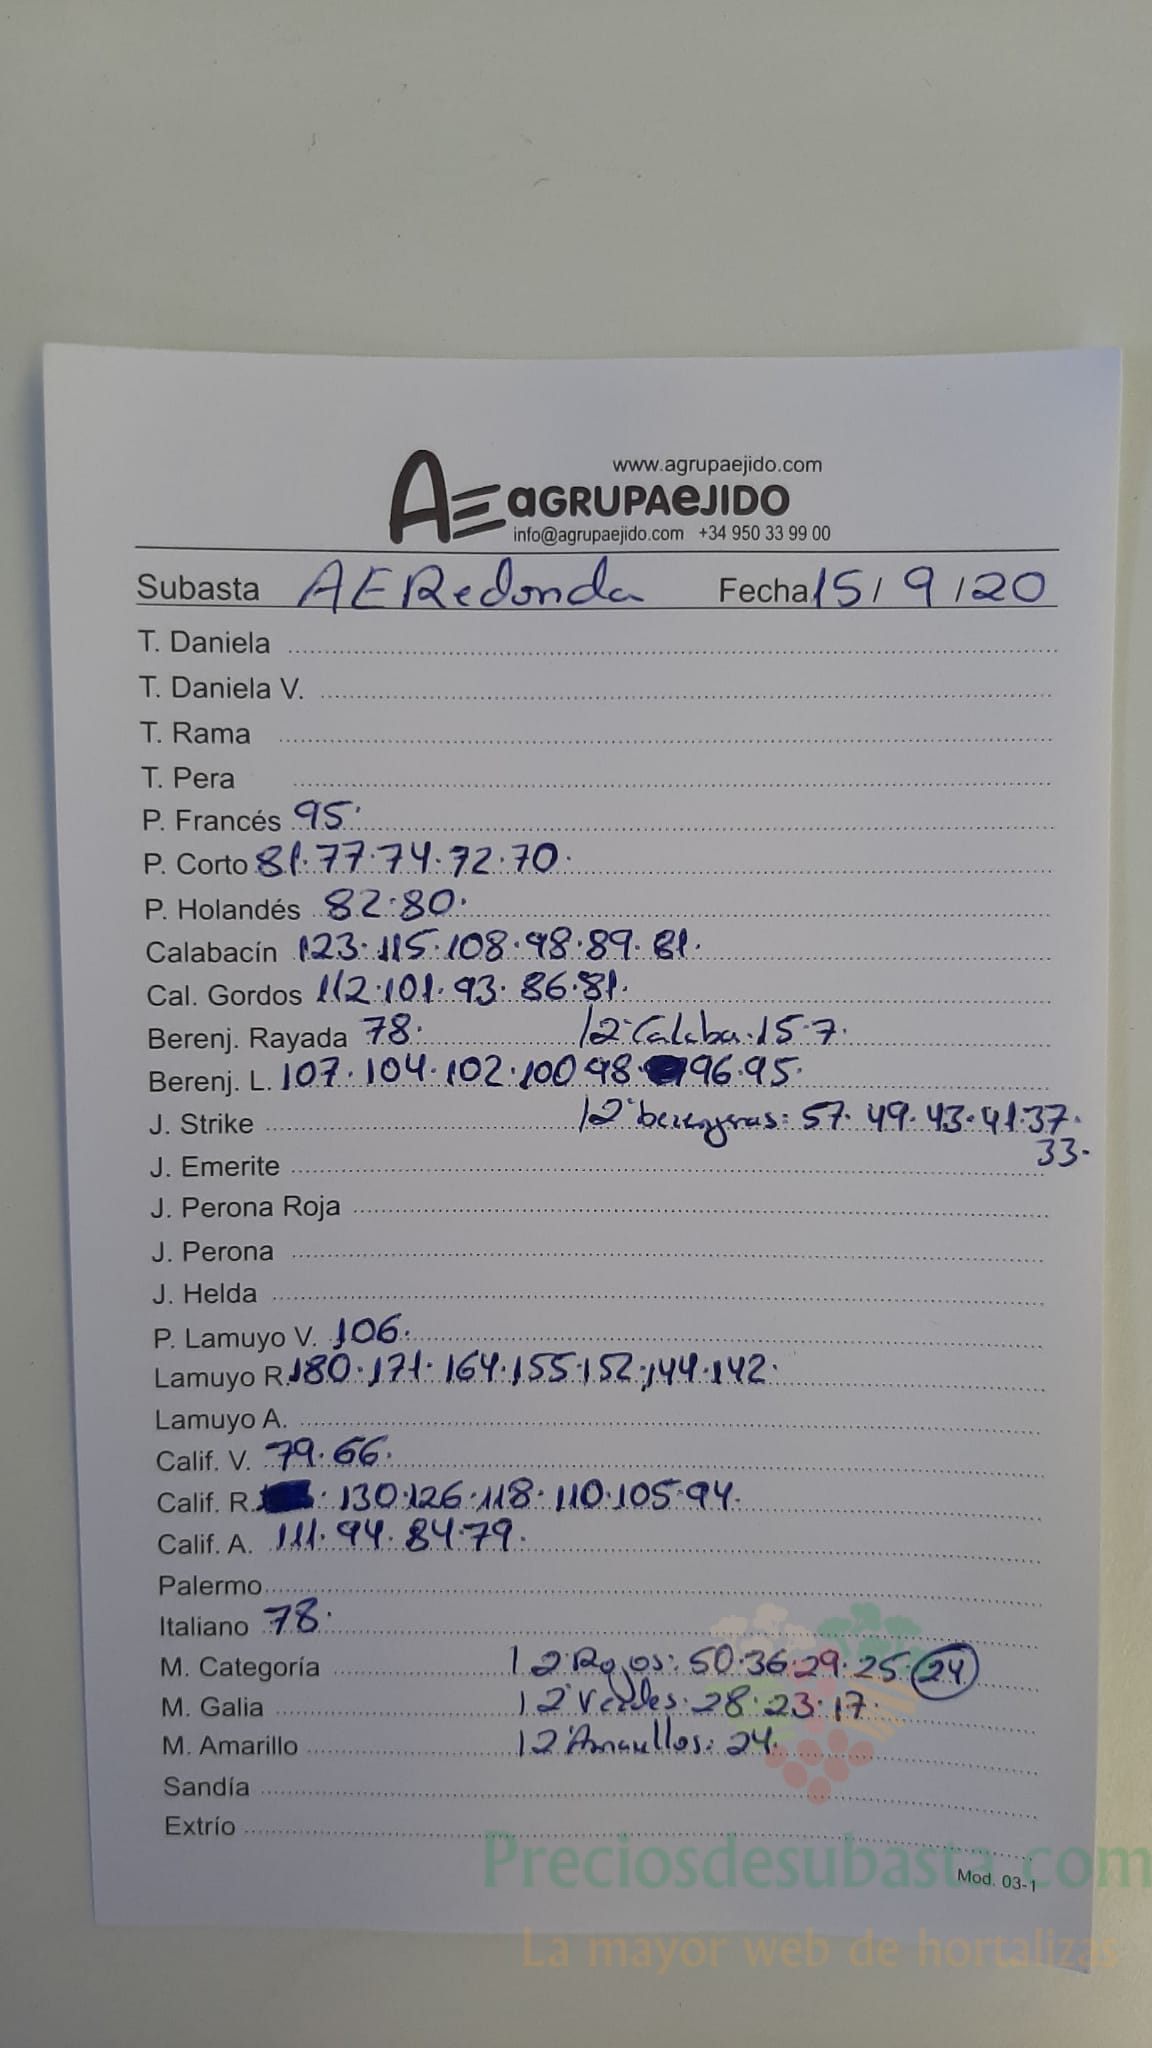 www.agrupaejido.com
AE aGRUPAeJIDO
info@agrupaejido.com +34 950 33 99 00
Subasta AERedonda Fecha 15/9/20
T. Daniela
T. Daniela V.
T. Rama
T. Pera
P. Francés 95.
P. Corto 81.77.74.72.70.
P. Holandés 82.80.
Calabacín 123.115.108.98.89.81.
Cal. Gordos 112.101.93.86.81.
Berenj. Rayada 78. 12ªCalaba.15.7.
Berenj. L. 107.104.102.100 98. 96.95.
J. Strike 12ªberenjenas: 57.49.43.41.37.
33.
J. Emerite
J. Perona Roja
J. Perona
J. Helda
P. Lamuyo V. 106.
Lamuyo R. 180.171.164.155.152.144.142.
Lamuyo A.
Calif. V. 79.66.
Calif. R. .130.126.118.110.105.94.
Calif. A. 111.94.84.79.
Palermo
Italiano 78.
M. Categoría 12ªRojos: 50.36.29.25.24
M. Galia 12ªVerdes: 28.23.17.
M. Amarillo 12ªAmarillos: 24.
Sandía
Extrío
Preciosdesubasta.com
Mod. 03-1
La mayor web de hortalizas